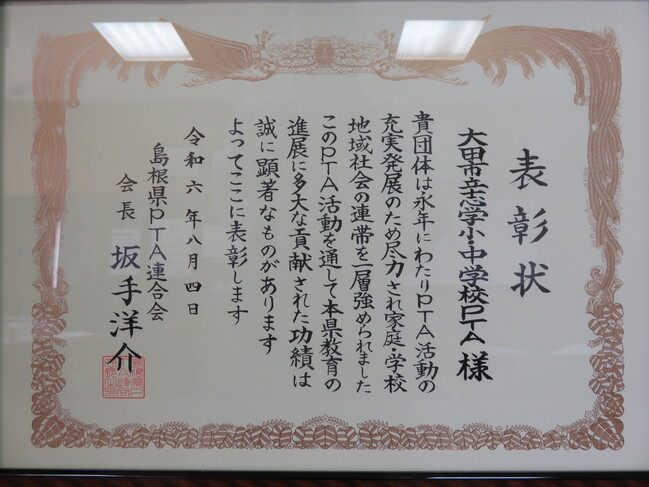 表彰状
大田市立志学小・中学校PTA様
貴団体は永年にわたりPTA活動の
充実発展のため尽力され家庭・学校
地域社会の連帯を一層強められました
このPTA活動を通して本県教育の
進展に多大な貢献された功績は
誠に顕著なものがあります
よってここに表彰します
令和六年八月四日
島根県PTA連合会
会長 坂手洋介